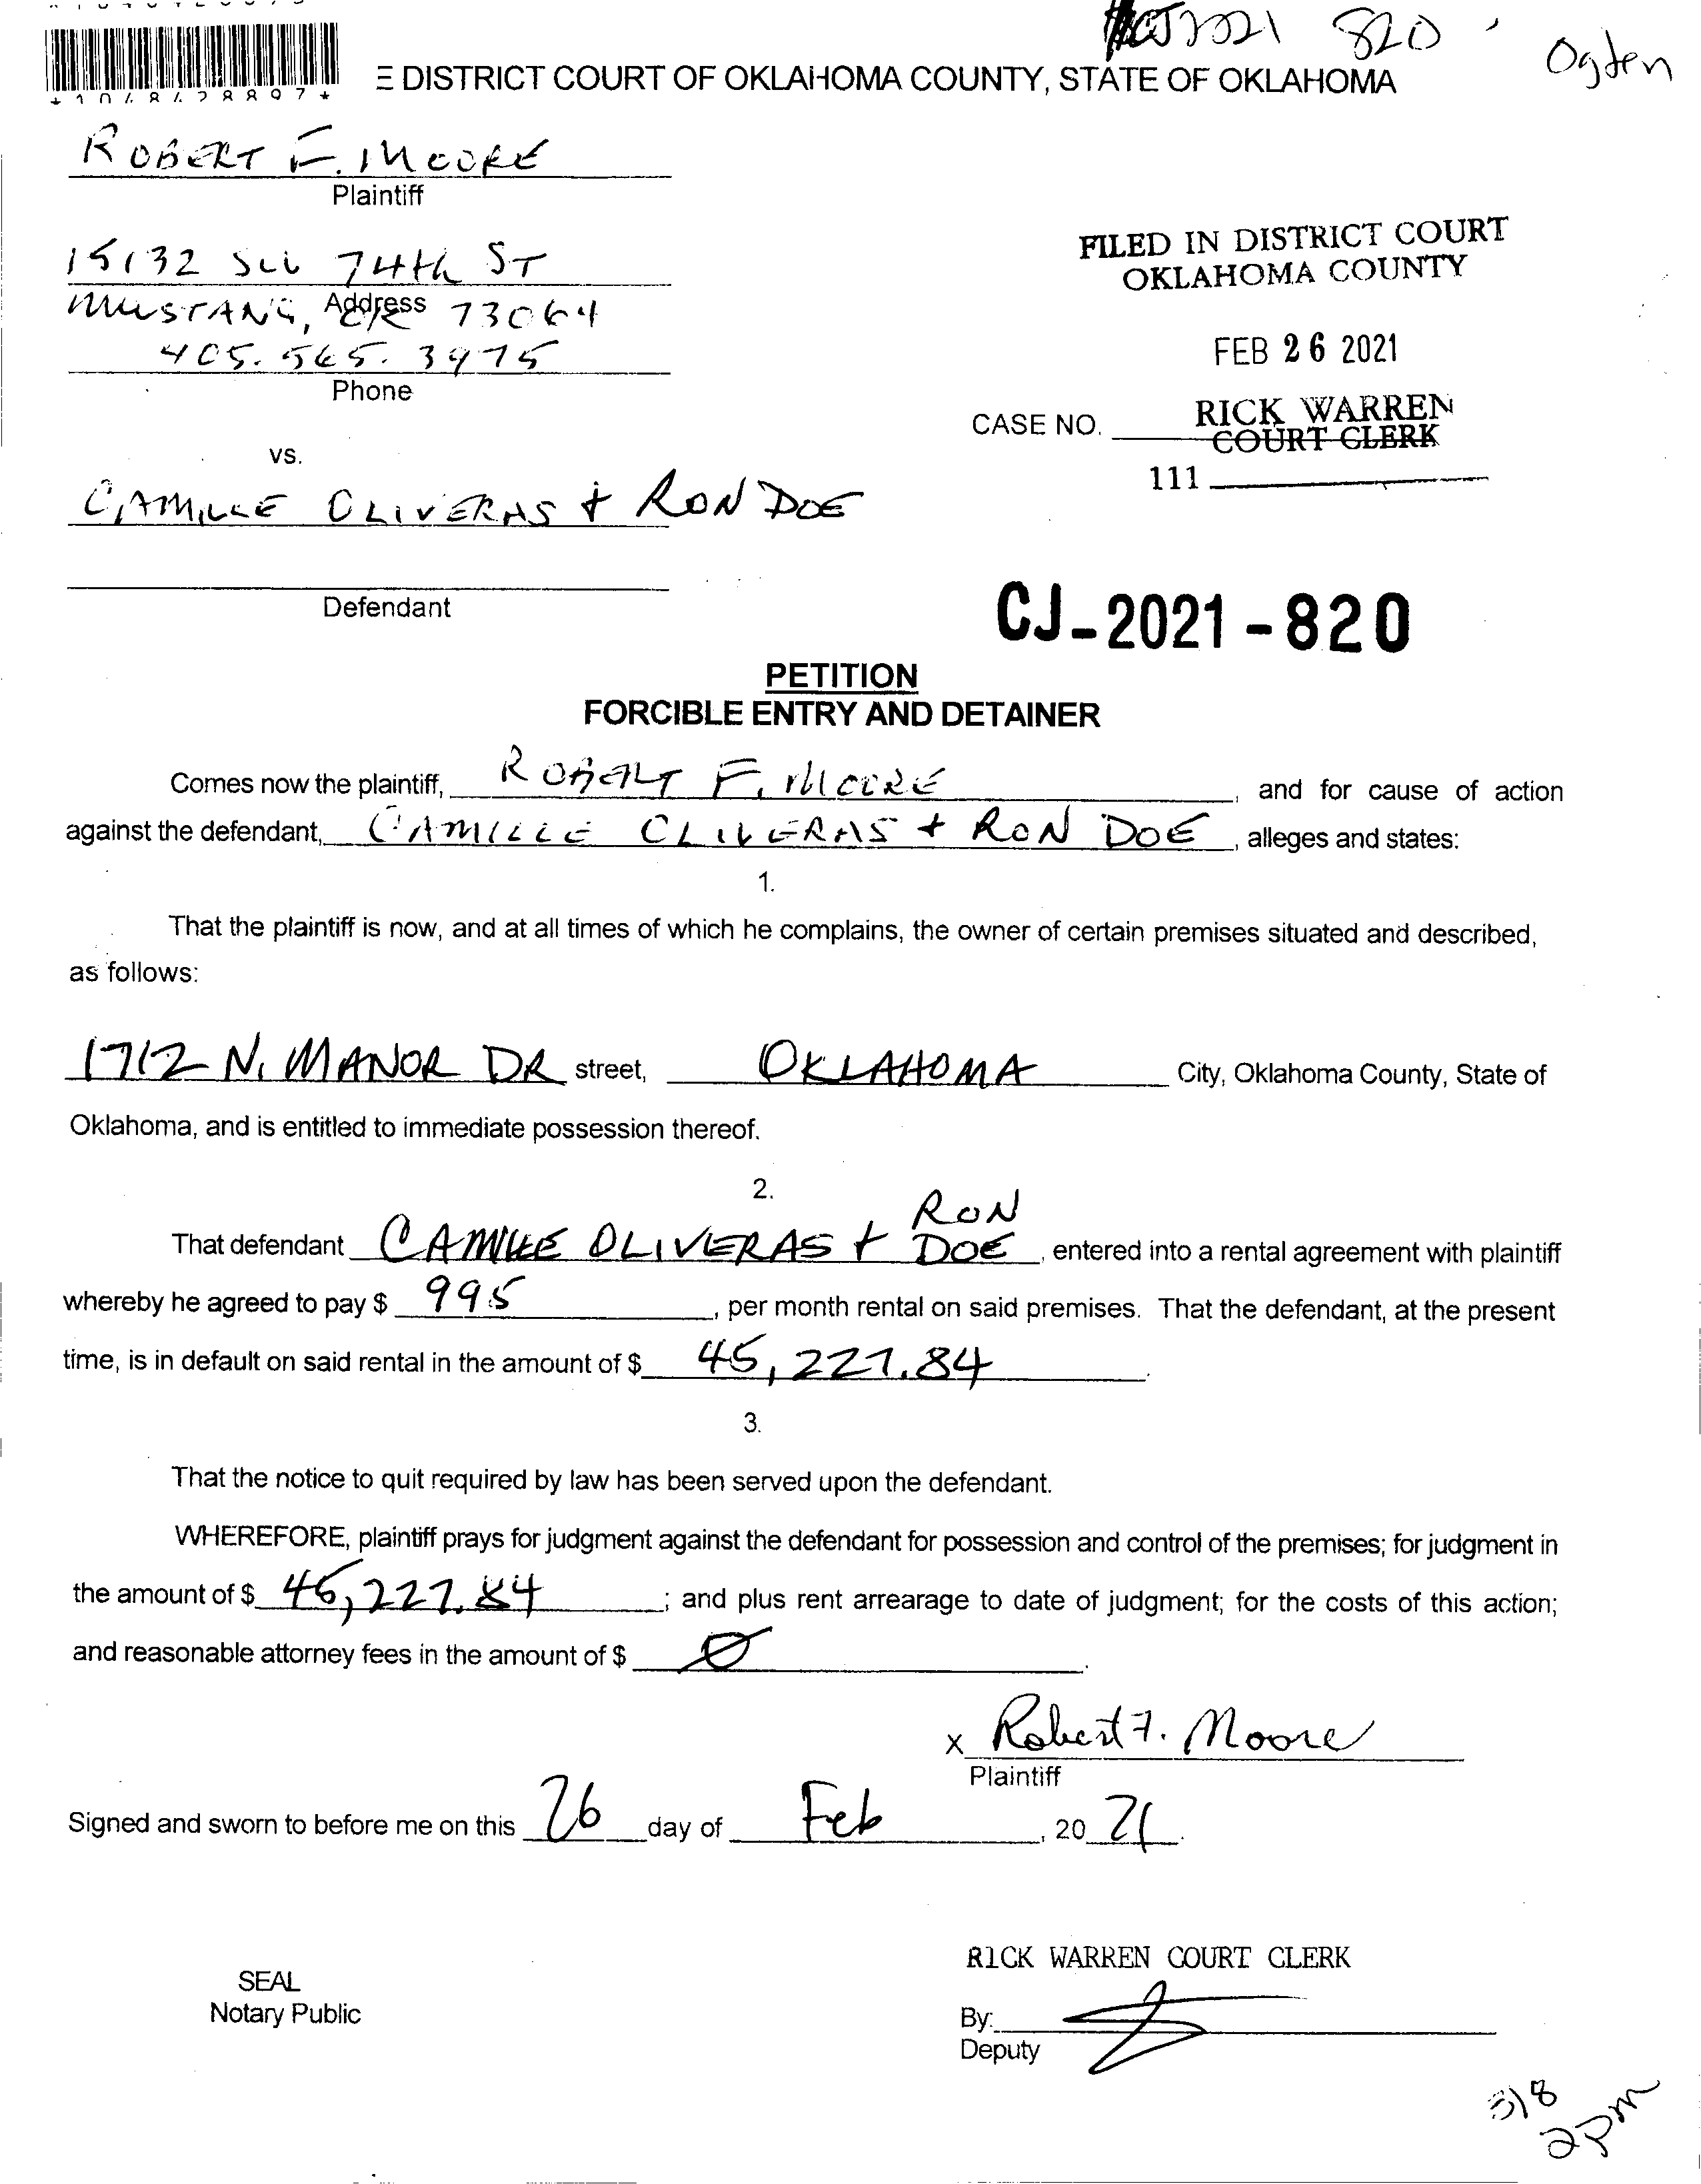 CJ 2021 820
Ogden
*1048428897*
E DISTRICT COURT OF OKLAHOMA COUNTY, STATE OF OKLAHOMA
ROBERT F. MOORE
Plaintiff
15132 SW 74th ST
Address
MUSTANG, OK 73064
405.565.3975
Phone
FILED IN DISTRICT COURT
OKLAHOMA COUNTY
FEB 26 2021
RICK WARREN
COURT CLERK
CASE NO.
111
vs.
CAMILLE OLIVERAS + RON DOE
Defendant
CJ-2021-820
PETITION
FORCIBLE ENTRY AND DETAINER
Comes now the plaintiff, ROBERT F. MOORE, and for cause of action
against the defendant, CAMILLE OLIVERAS + RON DOE, alleges and states:
1.
That the plaintiff is now, and at all times of which he complains, the owner of certain premises situated and described,
as follows:
1712 N. MANOR DR street, OKLAHOMA City, Oklahoma County, State of
Oklahoma, and is entitled to immediate possession thereof.
2.
That defendant CAMILLE OLIVERAS + RON DOE, entered into a rental agreement with plaintiff
whereby he agreed to pay $ 995, per month rental on said premises. That the defendant, at the present
time, is in default on said rental in the amount of $ 45,227.84.
3.
That the notice to quit required by law has been served upon the defendant.
WHEREFORE, plaintiff prays for judgment against the defendant for possession and control of the premises; for judgment in
the amount of $ 45,227.84; and plus rent arrearage to date of judgment; for the costs of this action;
and reasonable attorney fees in the amount of $ Ø.
x Robert F. Moore
Plaintiff
Signed and sworn to before me on this 26 day of Feb, 20 21.
RICK WARREN COURT CLERK
SEAL
Notary Public
By:
Deputy
2pm